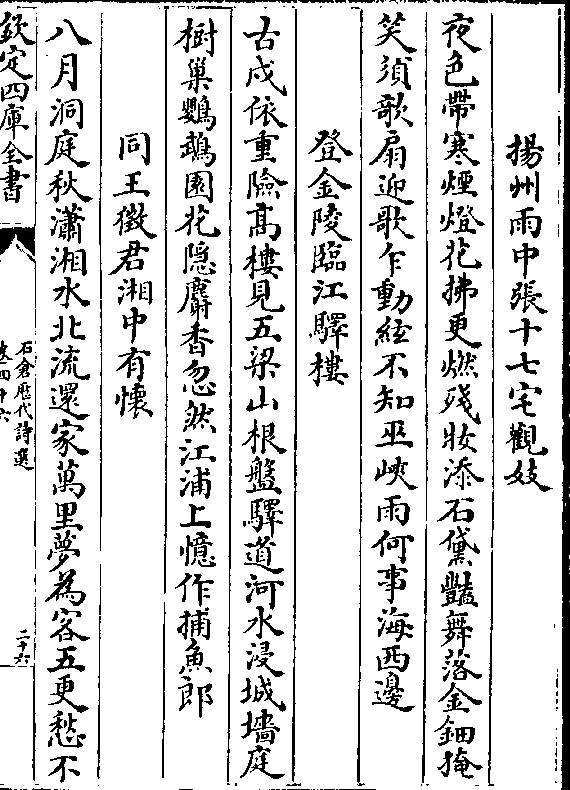 揚州雨中張十七宅觀妓
夜色帶寒煙燈花拂更燃殘妝添石黛豔舞落金鈿掩
笑須歌扇迎歌乍動絃不知巫峽雨何事海西邊
登金陵臨江驛樓
古戍依重險髙樓見五梁山根盤驛道河水浸城墻庭
樹巢鸚鵡園花隠麝香忽然江浦上憶作捕魚郎
同王徵君湘中有懷
八月洞庭秋瀟湘水北流還家萬里夢為客五更愁不
欽定四庫全書
石倉歴代詩選
卷四十六
二十六